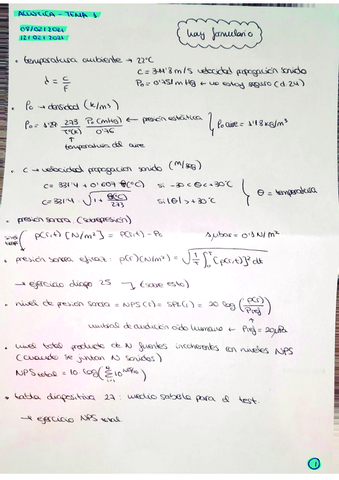 ACÚSTICA - TEMA 1
07/02/2021
12/02/2021
hay formulario
• temperatura ambiente → 22ºC
λ = C/F
C = 344'3 m/s velocidad propagación sonido
P₀ = 0'751 m Hg ← no estoy seguro (d.24)
• ρ₀ → densidad (k/m³)
ρ₀ = 1'29 · 273/Tª(K) · P₀(mHg)/0'76 ← presión estática } ρ₀ aire = 1'18 kg/m³
temperatura del aire
• C → velocidad propagación sonido (m/seg)
C = 331'4 + 0'607 θ(ºC) si -30 < θ < +30ºC
C = 331'4 · √(1 + θ(ºC)/273) si |θ| > +30ºC } θ = temperatura
• presión sonora (sobrepresión)
p(r,t) [N/m²] = P(r,t) - P₀ 1 μbar = 0'1 N/m²
• presión sonora eficaz: p(r) (N/m²) = √(1/T ∫₀ᵀ [p(r,t)]² dt
→ ejercicio diapo 25 (sale esto)
• nivel de presión sonora = NPS(r) = SPL(r) = 20 log (p(r)/Pref)
umbral de audición oído humano ← Pref = 20μPa
• nivel total producto de N fuentes incoherentes en niveles NPS
(cuando se juntan N sonidos)
NPS total = 10 log (Σ 10^(NPSi/10))
• tabla diapositiva 27: medio saberla para el test.
→ ejercicio NPS total
1